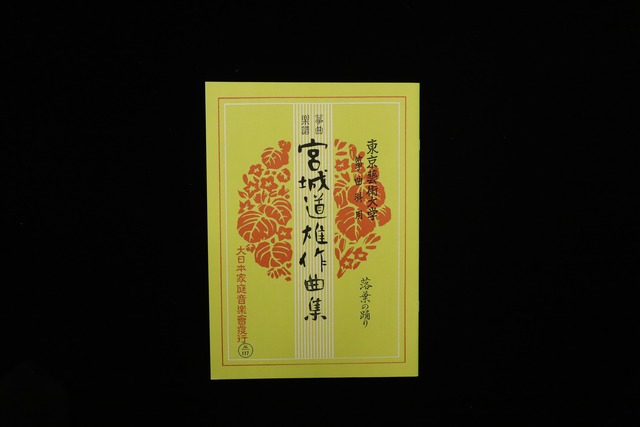 東京藝術大学
箏曲科用
箏曲
楽譜
宮城道雄作曲集
落葉の踊り
大日本家庭音楽會発行